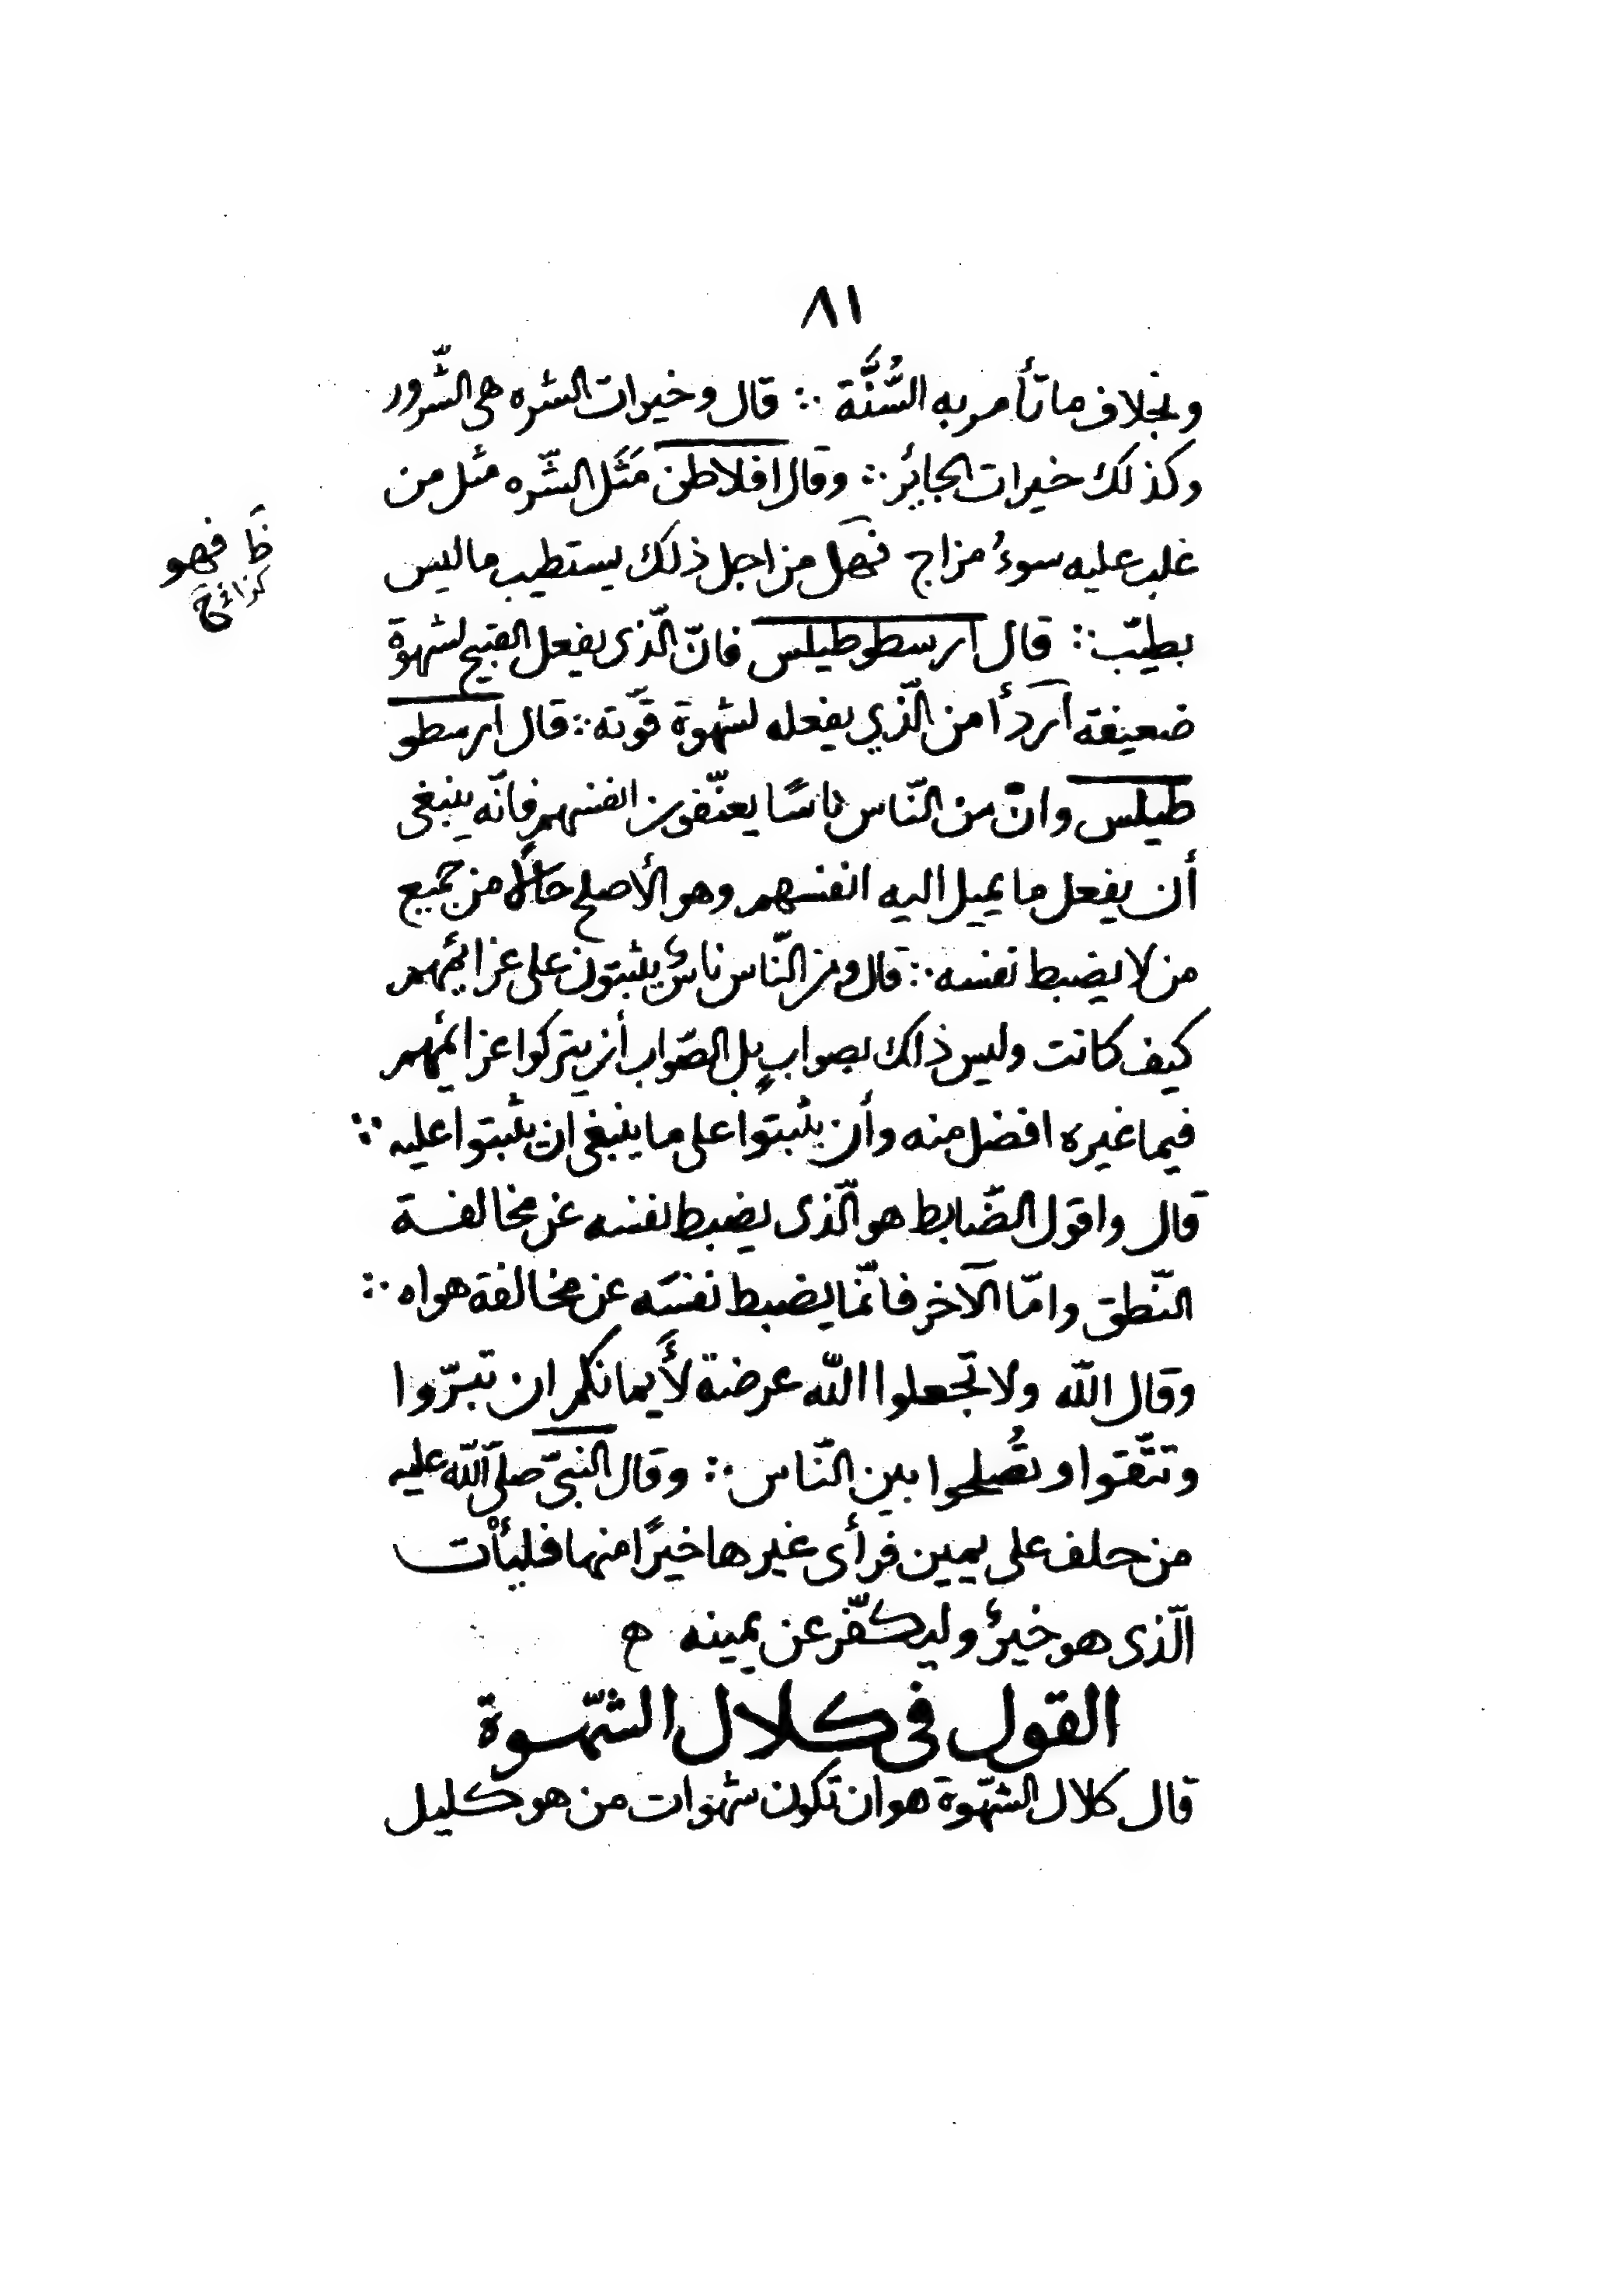 ٨١
وبخلاف ما تأمر به السُّنَّة ∴ قال وخيرات الشره هى الشّرور
وكذلك خيرات الجائر ∴ وقال افلاطن مَثَل الشّره مثل من
غلب عليه سوءُ مزاج فهل من اجل ذلك يستطيب ما ليس
بطيّب ∴ قال ارسطوطيلس فانّ الّذى يفعل القبيح لشهوة
ضعيفة أردأ من الّذي يفعله لشهوة قوّته ∴ قال ارسطو
طيلس وانّ من النّاس ناسًا يعنّفون انفسهم فانّه ينبغى
أن يفعل ما يميل اليه انفسهم وهو الأصلح حالاً من جميع
من لا يضبط نفسه ∴ قال ومن النّاس ناسٌ يثبتون على عزائمهم
كيف كانت وليس ذلك بصوابٍ بل الصّواب أن يتركوا عزائمهم
فيما غيره افضل منه وأن يثبتوا على ما ينبغى ان يثبتوا عليه ∴
قال واقول الضّابط هو الّذى يضبط نفسه عن مخالفة
النّطق وامّا الآخر فانّما يضبط نفسَه عن مخالفة هواه ∴
وقال اللّه ولا تجعلوا اللّه عرضة لأَيمانكم ان تبرّوا
وتتّقوا وتُصلحوا بين النّاس ∴ وقال النبىّ صلى اللّه عليه
من حلف على يمين فرأى غيرها خيرًا منها فليأْت
الّذى هو خيرٌ وليكفّر عن يمينه ه
القول فى كلال الشّهوة
قال كلال الشّهوة هو ان تكون شهوات من هو كليل
ظ فهو